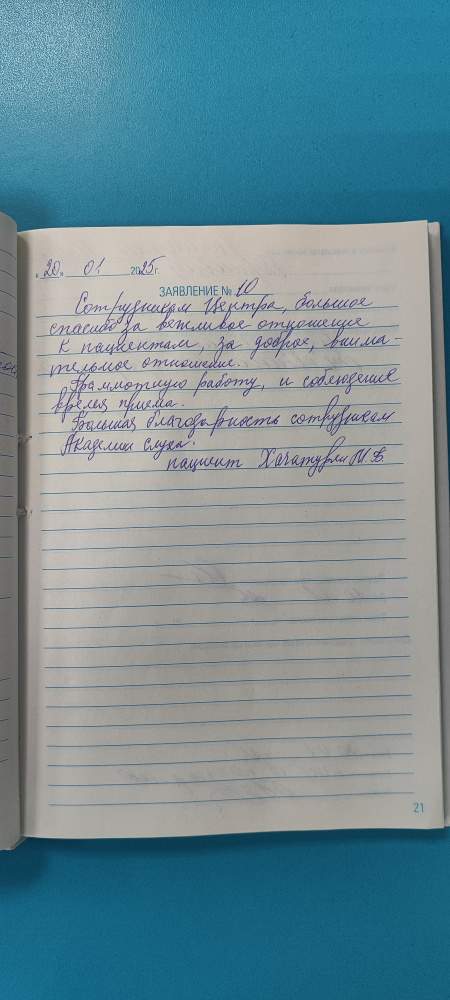 «20» 01 2025г.
ЗАЯВЛЕНИЕ № 10
Сотрудникам Центра, большое
спасибо за вежливое отношение
к пациентам, за доброе, внима-
тельное отношение.
Грамотную работу, и соблюдение
время приема.
Большая благодарность сотрудникам
Академии слуха.
пациент Хачатурян М.В.
21